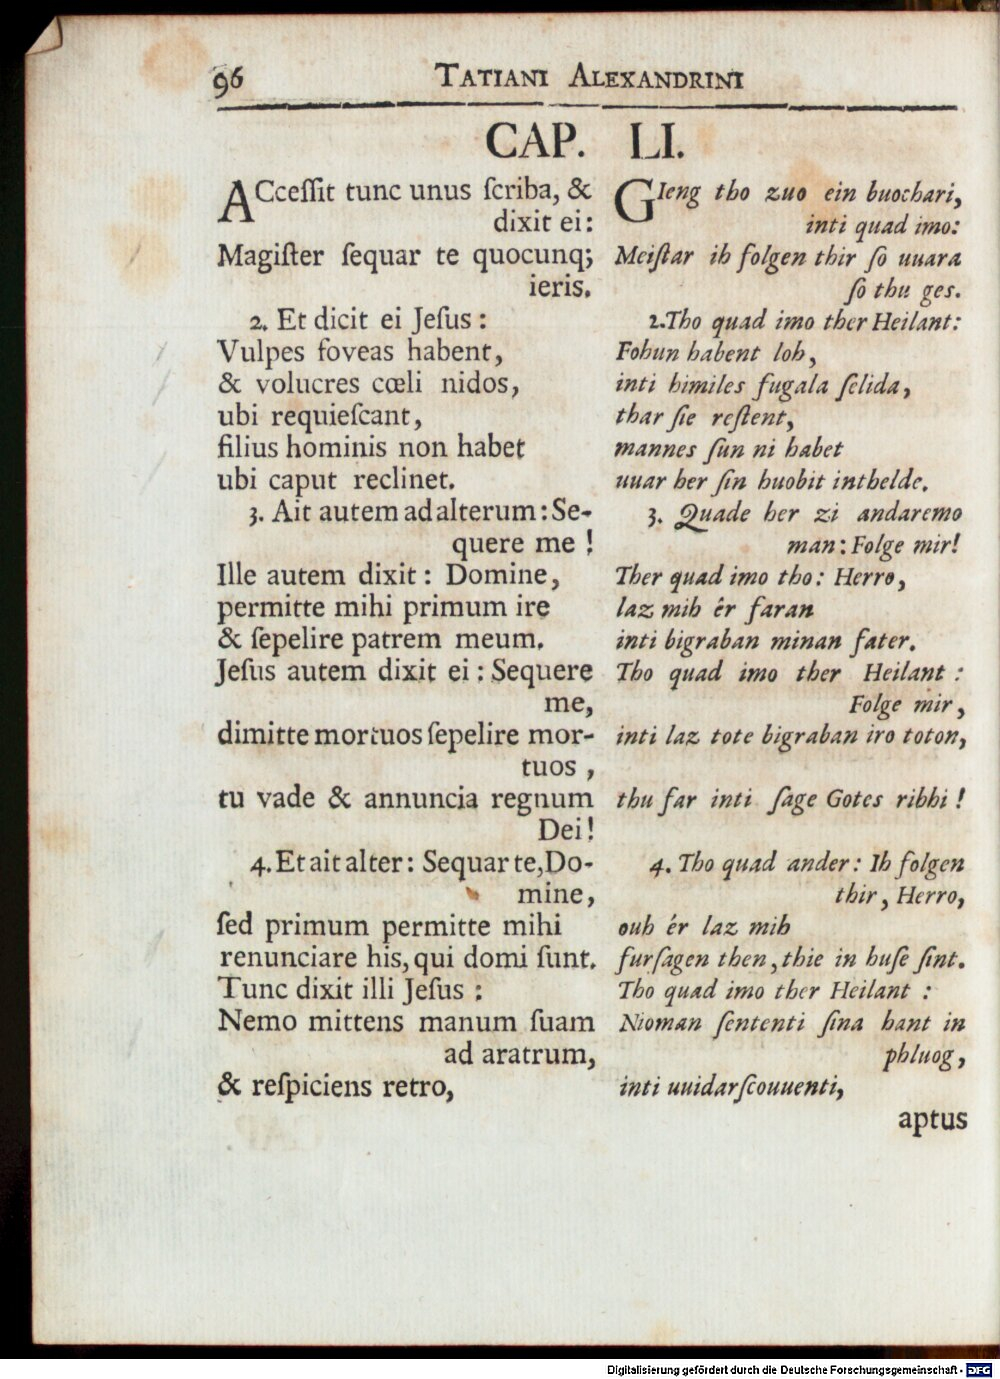 96 TATIANI ALEXANDRINI
CAP. LI.
ACceſſit tunc unus ſcriba, &
dixit ei:
Magiſter ſequar te quocunq;
ieris.
2. Et dicit ei Jeſus:
Vulpes foveas habent,
& volucres cœli nidos,
ubi requieſcant,
filius hominis non habet
ubi caput reclinet.
3. Ait autem ad alterum: Se-
quere me!
Ille autem dixit: Domine,
permitte mihi primum ire
& ſepelire patrem meum.
Jeſus autem dixit ei: Sequere
me,
dimitte mortuos ſepelire mor-
tuos,
tu vade & annuncia regnum
Dei!
4. Et ait alter: Sequar te, Do-
mine,
ſed primum permitte mihi
renunciare his, qui domi ſunt.
Tunc dixit illi Jeſus:
Nemo mittens manum ſuam
ad aratrum,
& reſpiciens retro,
GIeng tho zuo ein buochari,
inti quad imo:
Meiſtar ih folgen thir ſo uuara
ſo thu ges.
2. Tho quad imo ther Heilant:
Fohun habent loh,
inti himiles fugala ſelida,
thar ſie reſtent,
mannes ſun ni habet
uuar her ſin huobit inthelde.
3. Quade her zi andaremo
man: Folge mir!
Ther quad imo tho: Herro,
laz mih êr faran
inti bigraban minan fater.
Tho quad imo ther Heilant:
Folge mir,
inti laz tote bigraban iro toton,
thu far inti ſage Gotes rihhi!
4. Tho quad ander: Ih folgen
thir, Herro,
ouh ér laz mih
furſagen then, thie in huſe ſint.
Tho quad imo ther Heilant:
Nioman ſententi ſina hant in
phluog,
inti uuidarſcouuenti,
aptus
Digitalisierung gefördert durch die Deutsche Forschungsgemeinschaft - DFG